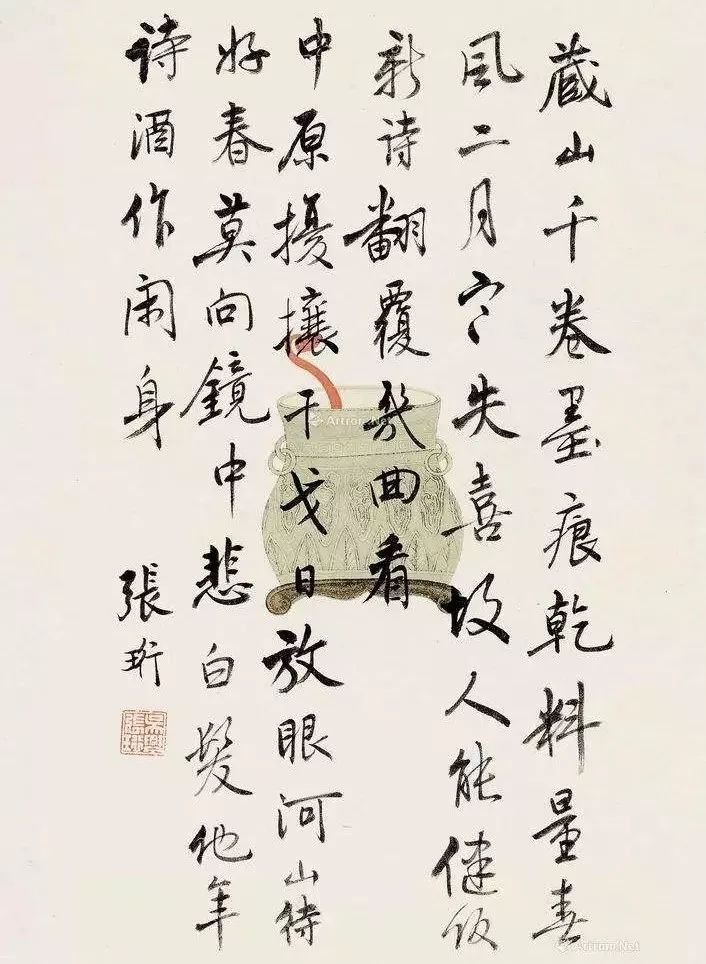 藏山千卷墨痕乾料量春
風二月寒失喜故人能健飯
新詩翻覆幾回看
中原擾攘干戈日放眼河山待
好春莫向鏡中悲白髮他年
詩酒作閑身
張珩
吳興張珩
Artron.Net
Artron.Net